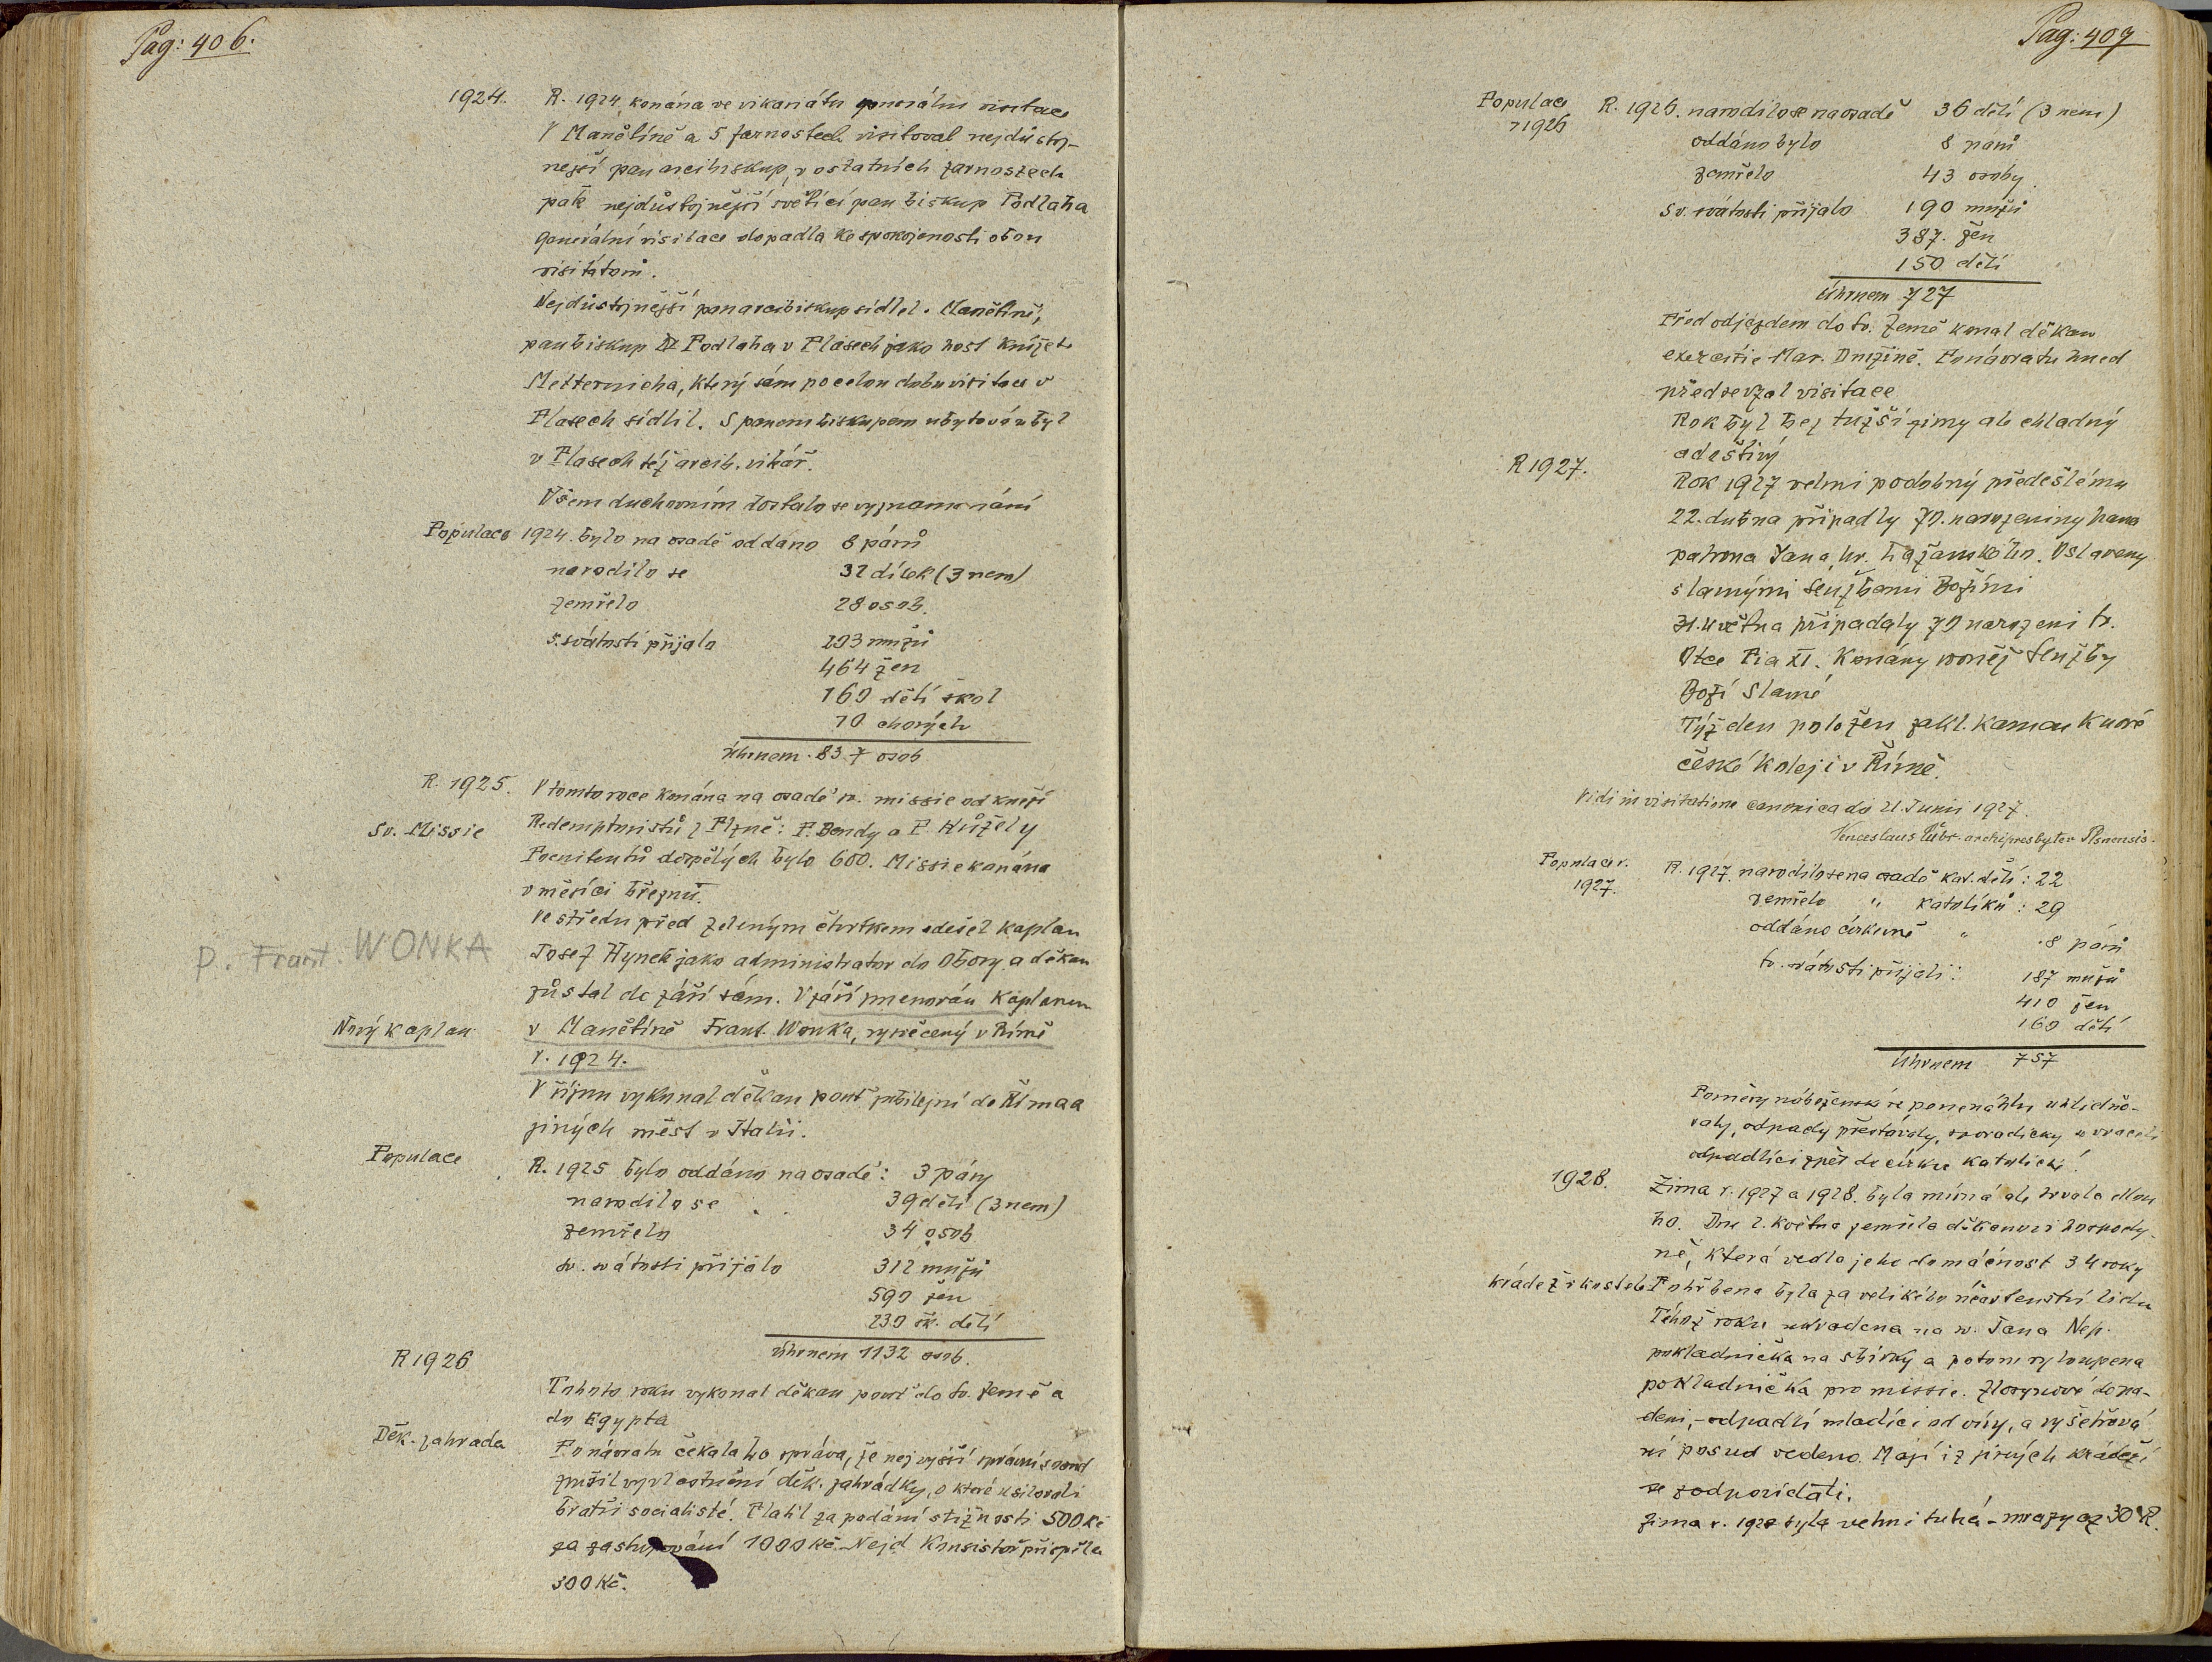 Pag: 406.
1924. R. 1924 konána ve vikariátu generální visitace
V Manětíně a 5 farnostech visitoval nejdůstoj-
nejší pan arcibiskup, v ostatních farnostech
pak nejdůstojnější světící pan biskup Podlaha
Generální visitace dopadla ke spokojenosti obou
visitátorů.
Nejdůstojnější pan arcibiskup sídlel v Manětíně,
pan biskup Podlaha v Plasech jako host knížete
Metternicha, který sám po celou dobu visitace v
Plasech sídlil. S panem biskupem ubytován byl
v Plasech též arcib. vikář.
Všem duchovním dostalo se vyznamenání
Populace 1924. bylo na osadě oddáno 8 párů
narodilo se 32 dítek (3 nem)
zemřelo 28 osob.
s. svátosti přijalo 193 mužů
464 žen
160 dětí škol
10 chorých
Úhrnem 837 osob
R. 1925. V tomto roce konána na osadě sv. missie od kněží
Sv. Missie Redemptoristů z Plzně: P. Bondy a P. Hůžely
Poenitentů dospělých bylo 600. Missie konána
v měsíci březnu.
Ve středu před zeleným čtvrtkem odešel kaplan
P. Frant. WONKA
Josef Hynek jako administrator do Obory a děkan
zůstal do září sám. V září jmenován kaplanem
Nový kaplan v Manětíně Frant. Wonka, vysvěcený v Římě
r. 1924.
V říjnu vykonal děkan pouť jubilejní do Říma a
jiných měst v Italii.
Populace R. 1925 bylo oddáno na osadě: 3 páry
narodilo se 39 dětí (3 nem)
zemřelo 34 osob
sv. svátosti přijalo 312 mužů
590 žen
230 šk. dětí
Úhrnem 1132 osob.
R 1926
Tohoto roku vykonal děkan pouť do sv. země a
do Egypta
Děk. zahrada Po návratu čekala ho zpráva, že nejvyšší správní soud
zrušil vyvlastnění děk. zahrádky, o které usilovali
bratři socialisté. Platil za podání stížnosti 500 Kč
za zastupování 1000 Kč. Nejd. Konsistoř přispěla
300 Kč.
Pag: 407
Populace r 1926 R. 1926. narodilo se na osadě 36 dětí (3 nem)
oddáno bylo 8 párů
zemřelo 43 osoby
sv. svátosti přijalo 190 mužů
387. žen
150 dětí
Úhrnem 727
Před odjezdem do sv. Země konal děkan
exercicie Mar. Družině. Po návratu hned
předsevzal visitace
Rok byl bez tužší zimy ale chladný
a deštivý
R 1927. Rok 1927 velmi podobný předešlému
22. dubna připadly 70. narozeniny pana
patrona Jana hr. Lažanského. Oslaveny
slavnými službami Božími
31. května připadaly 70 narození sv.
Otce Pia XI. Konány rovněž služby
Boží slavné
Týž den položen zákl. kamen k nové
české koleji v Římě.
Vidi in visitatione canonica do 21. Junii 1927.
Venceslaus archipresbyter Plsnensis.
Populace r. 1927. R. 1927. narodilo se na osadě kat. dětí: 22
zemřelo " katolíků: 29
oddáno církevně " 8 párů
sv. svátosti přijali: 187 mužů
410 žen
160 dětí
Úhrnem 757
Poměry nábožensk se ponenáhlu uklidňo-
valy, odpady přestávaly, sporadicky se vraceli
odpadlíci zpět do církve katolické.
1928. Zima r. 1927 a 1928. byla mírná ale trvala dlou
ho. Dne 2. května zemřela děkanovi hospody-
ně, která vedla jeho domácnost 34 roky
krádež v kostele Pohřbena byla za velikého účastenství lidu
Téhož roku ukradena na sv. Jana Nep.
pokladnička na sbírky a potom vyloupena
pokladnička pro missie. Zlosynové dopa-
deni, - odpadlí mladíci od víry, a vyšetřová
ní posud vedeno. Mají i z jiných krádeží
se zodpovídati.
Zima r. 1928 byla velmi tuhá - mrazy až 30° R.